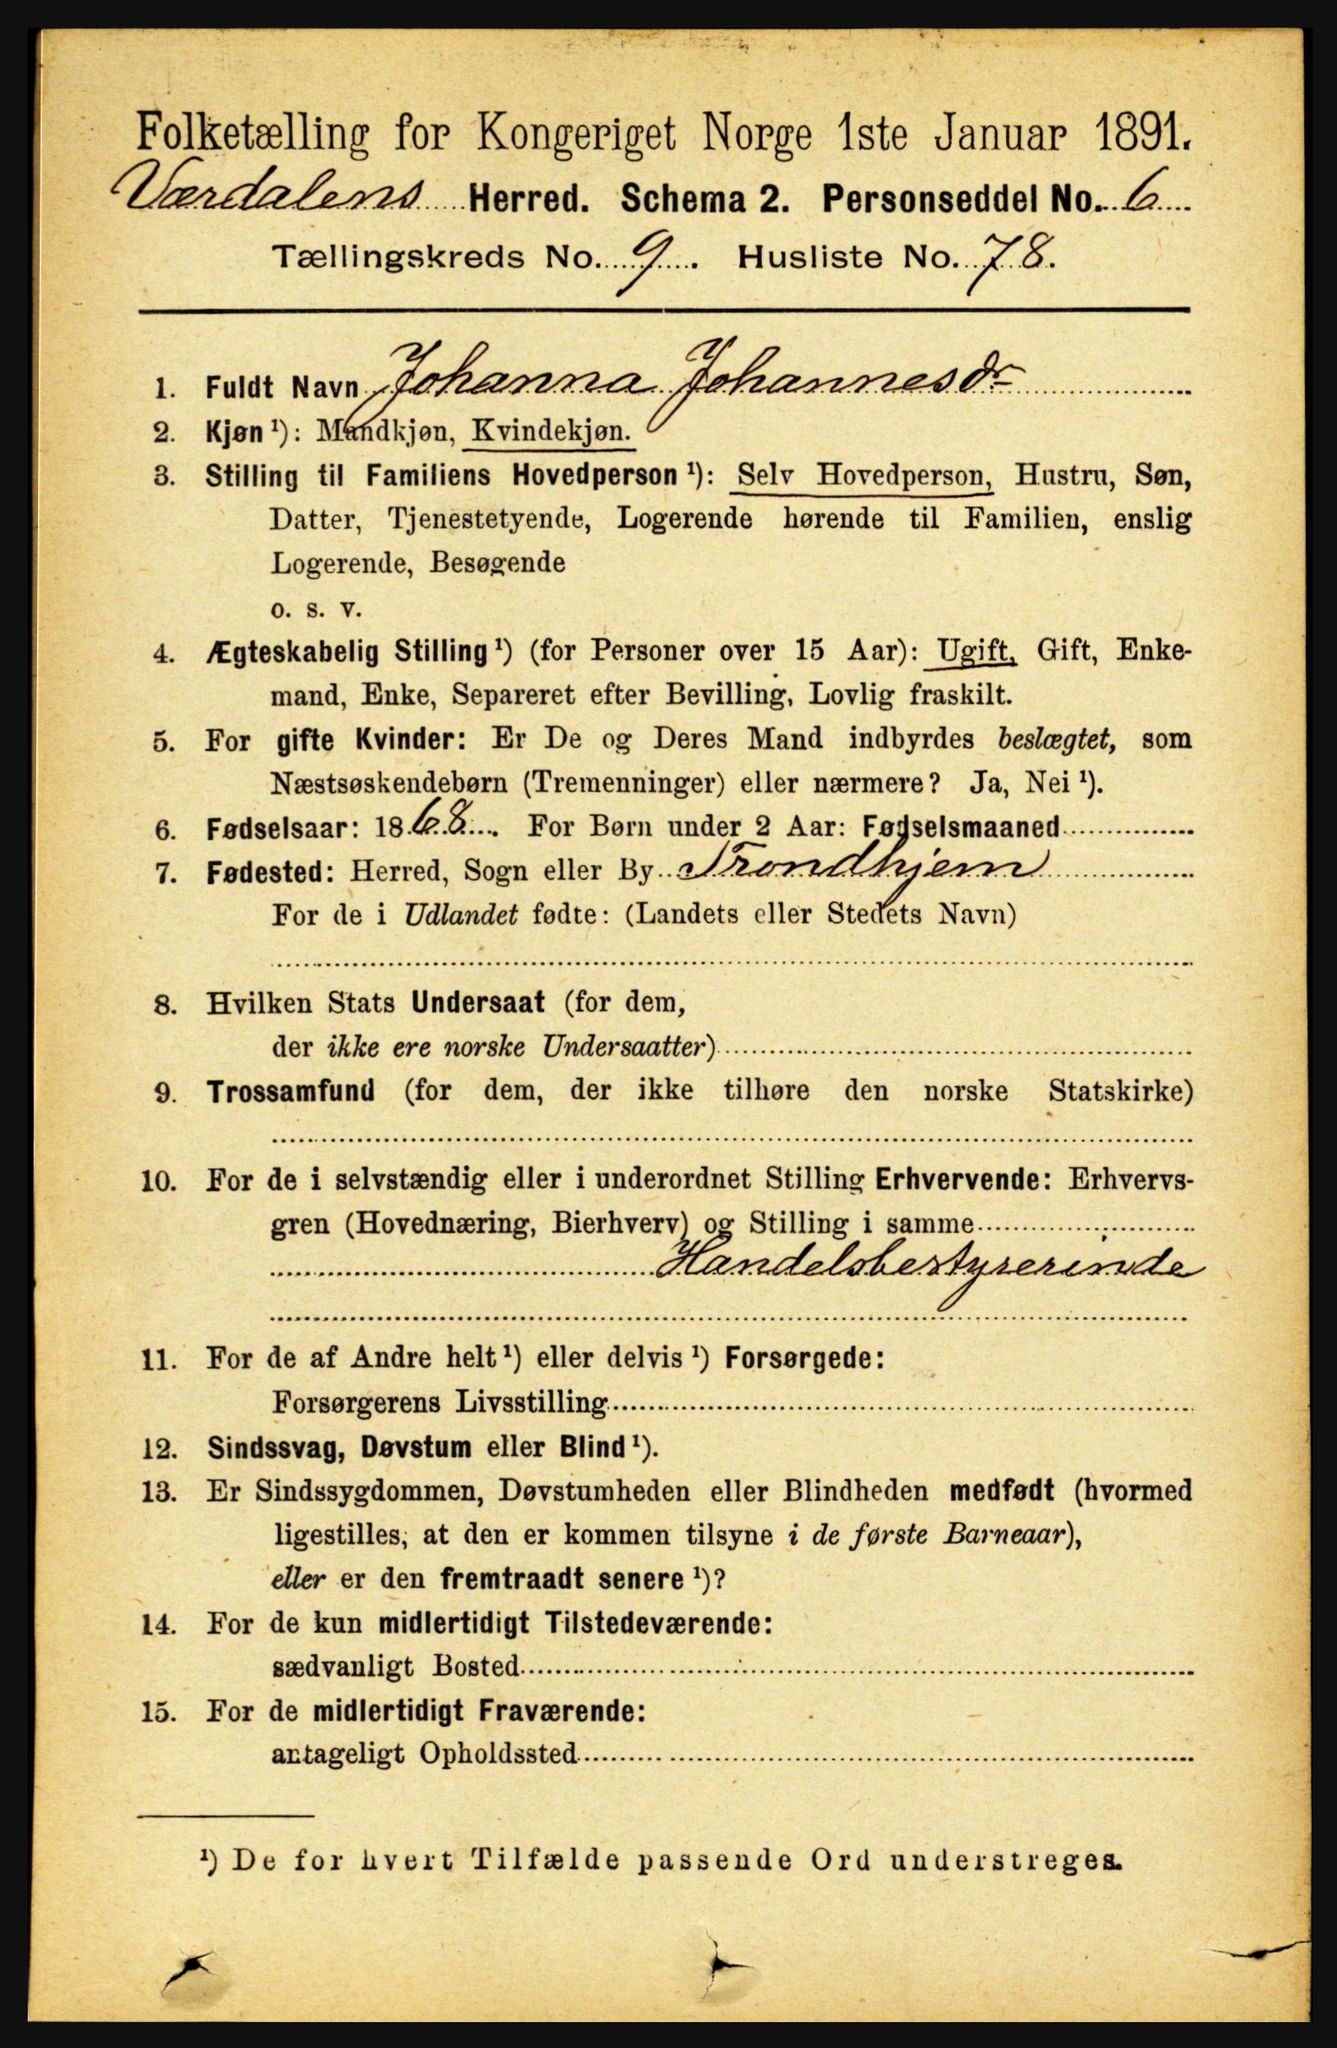 Folketælling for Kongeriget Norge 1ste Januar 1891.
Værdalens Herred. Schema 2. Personseddel No. 6
Tællingskreds No. 9. Husliste No. 78.
1. Fuldt Navn Johanna Johannesdr
2. Kjøn ¹): Mandkjøn, Kvindekjøn.
3. Stilling til Familiens Hovedperson ¹): Selv Hovedperson, Hustru, Søn,
Datter, Tjenestetyende, Logerende hørende til Familien, enslig
Logerende, Besøgende
o. s. v.
4. Ægteskabelig Stilling ¹) (for Personer over 15 Aar): Ugift, Gift, Enke-
mand, Enke, Separeret efter Bevilling, Lovlig fraskilt.
5. For gifte Kvinder: Er De og Deres Mand indbyrdes beslægtet, som
Næstsøskendebørn (Tremenninger) eller nærmere? Ja, Nei ¹).
6. Fødselsaar: 1868. For Børn under 2 Aar: Fødselsmaaned
7. Fødested: Herred, Sogn eller By Trondhjem
For de i Udlandet fødte: (Landets eller Stedets Navn)
8. Hvilken Stats Undersaat (for dem,
der ikke ere norske Undersaatter)
9. Trossamfund (for dem, der ikke tilhøre den norske Statskirke)
10. For de i selvstændig eller i underordnet Stilling Erhvervende: Erhvervs-
gren (Hovednæring, Bierhverv) og Stilling i samme
Handelsbestyrerinde
11. For de af Andre helt ¹) eller delvis ¹) Forsørgede:
Forsørgerens Livsstilling
12. Sindssvag, Døvstum eller Blind ¹).
13. Er Sindssygdommen, Døvstumheden eller Blindheden medfødt (hvormed
ligestilles, at den er kommen tilsyne i de første Barneaar),
eller er den fremtraadt senere ¹)?
14. For de kun midlertidigt Tilstedeværende:
sædvanligt Bosted
15. For de midlertidigt Fraværende:
antageligt Opholdssted
¹) De for hvert Tilfælde passende Ord understreges.